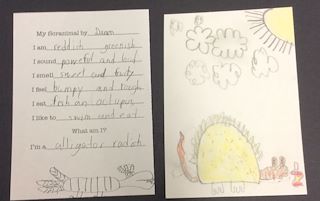 My floranimal by Dawn
I am reddish greenish
I sound powerful and loud
I smell sweet and fruity
I feel bumpy and rough
I eat fish an octupus
I like to swim and eat
What am I?
I'm a alligator radish